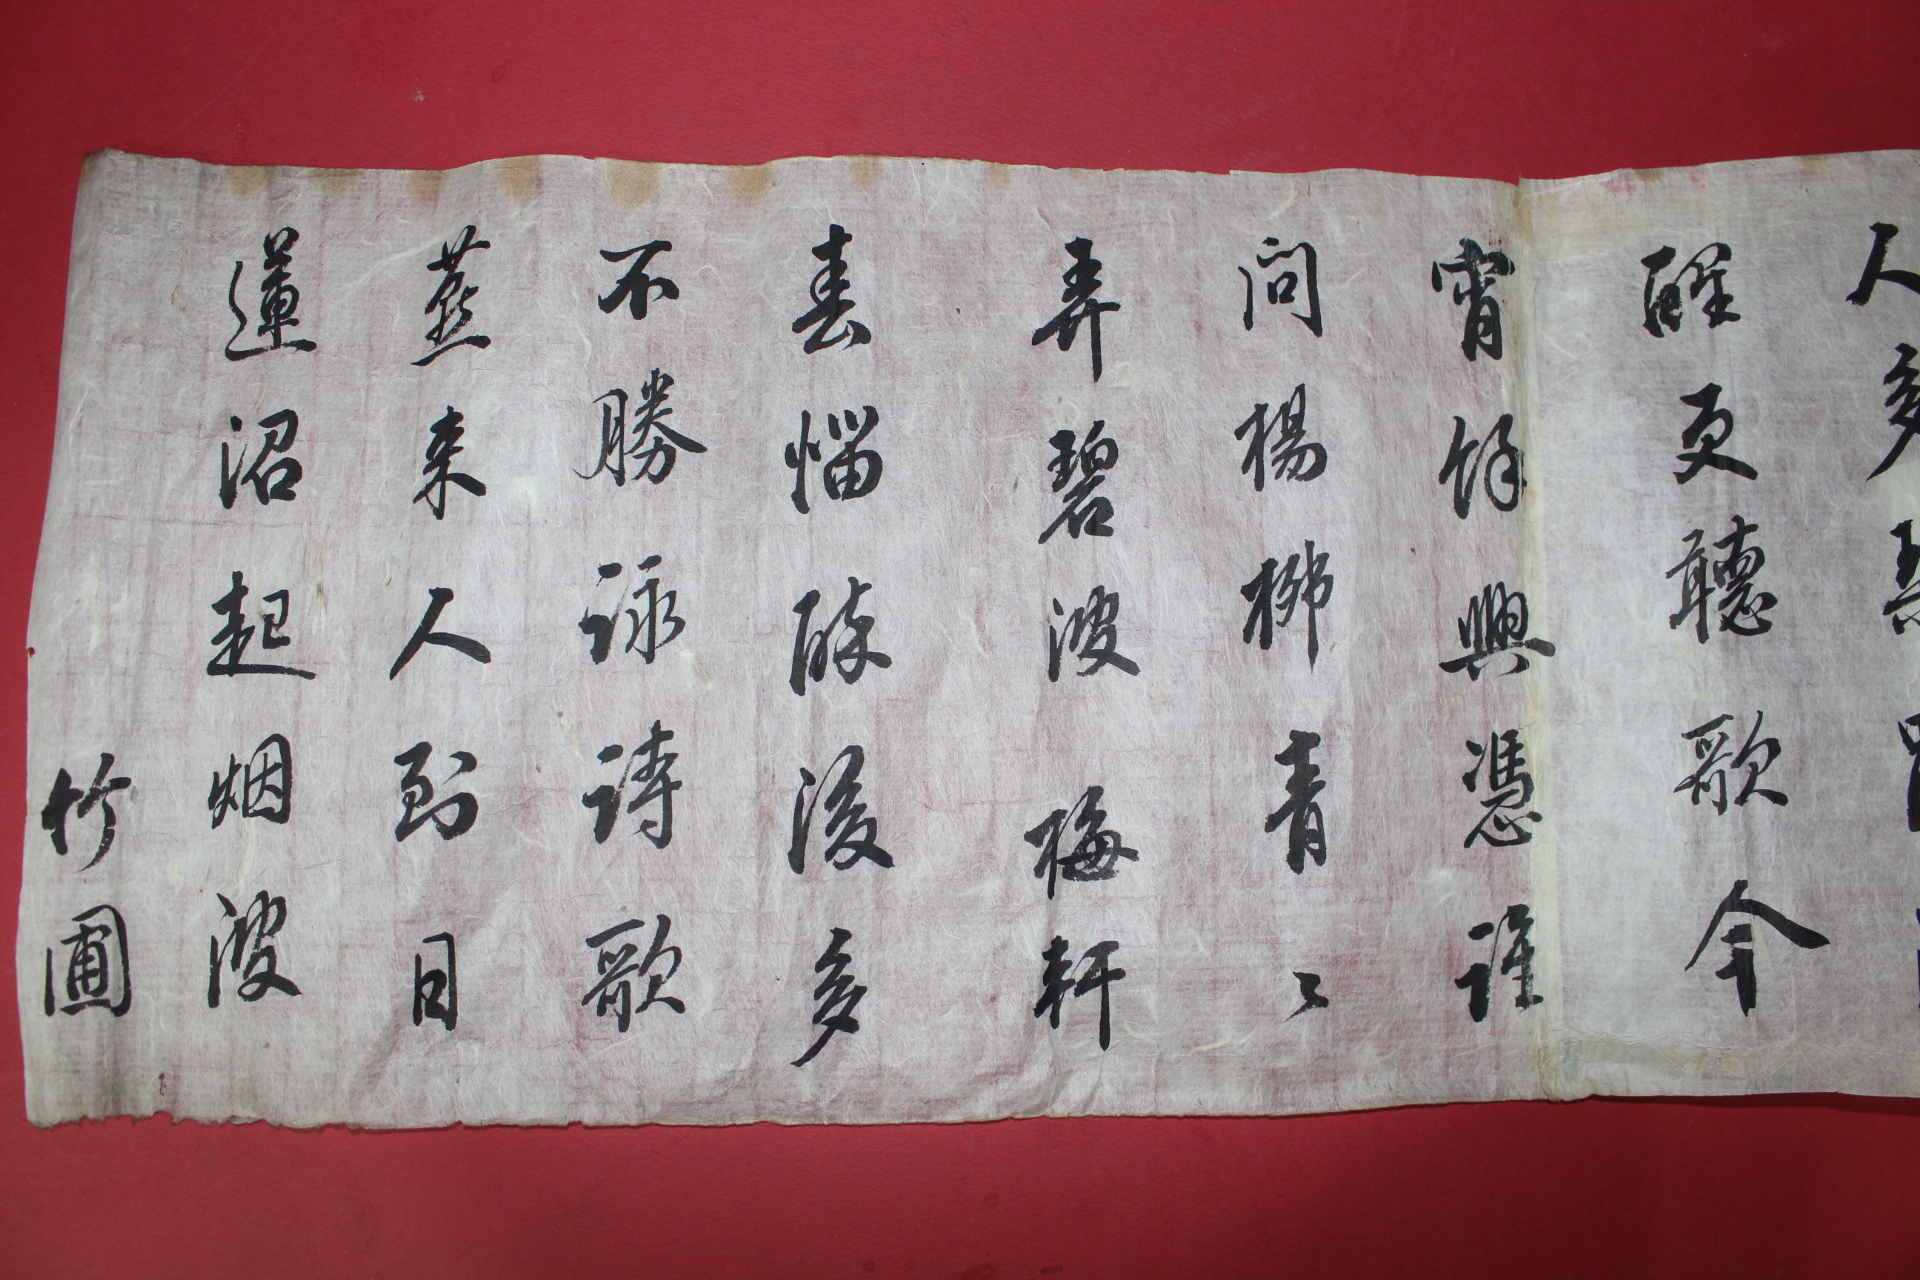 人多
醒更聽歌今
宵餘興憑誰
問楊柳青〻
弄碧波梅軒
春惱醉後多
不勝詠詩歌
燕来人到日
蓮沼起烟波
竹圃